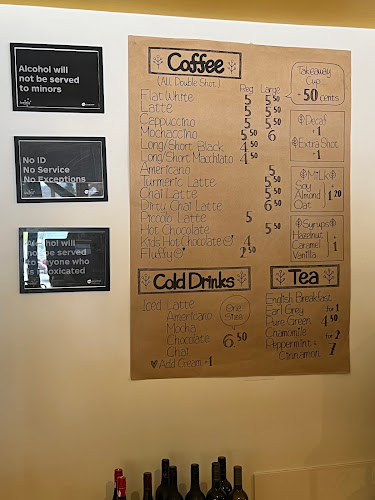 Alcohol will
not be served
to minors
No ID
No Service
No Exceptions
Alcohol will
not be served
to anyone who
is intoxicated
Coffee
(ALL Double Shot)
Reg Large
Flat White 5 5.50
Latte 5 5.50
Cappuccino 5 5.50
Mochaccino 5.50 6
Long/Short Black 4.50
Long/Short Macchiato 4.50
Americano 5
Turmeric Latte 5.50
Chai Latte 5.50
Dirty Chai Latte 6.50
Piccolo Latte 5
Hot Chocolate 5.50
Kids Hot Chocolate 4
Fluffy 2.50
Takeaway
Cup
-50 cents
Decaf
+1
Extra Shot
+1
Milk
Soy
Almond
Oat
+1.20
Syrups
Hazelnut
Caramel
Vanilla
+1
Cold Drinks
Iced Latte
Americano
Mocha
Chocolate
Chai
One
Size
6.50
Add Cream +1
Tea
English Breakfast
Earl Grey
Pure Green
Chamomile
Peppermint &
Cinnamon
for 1
4.50
for 2
7